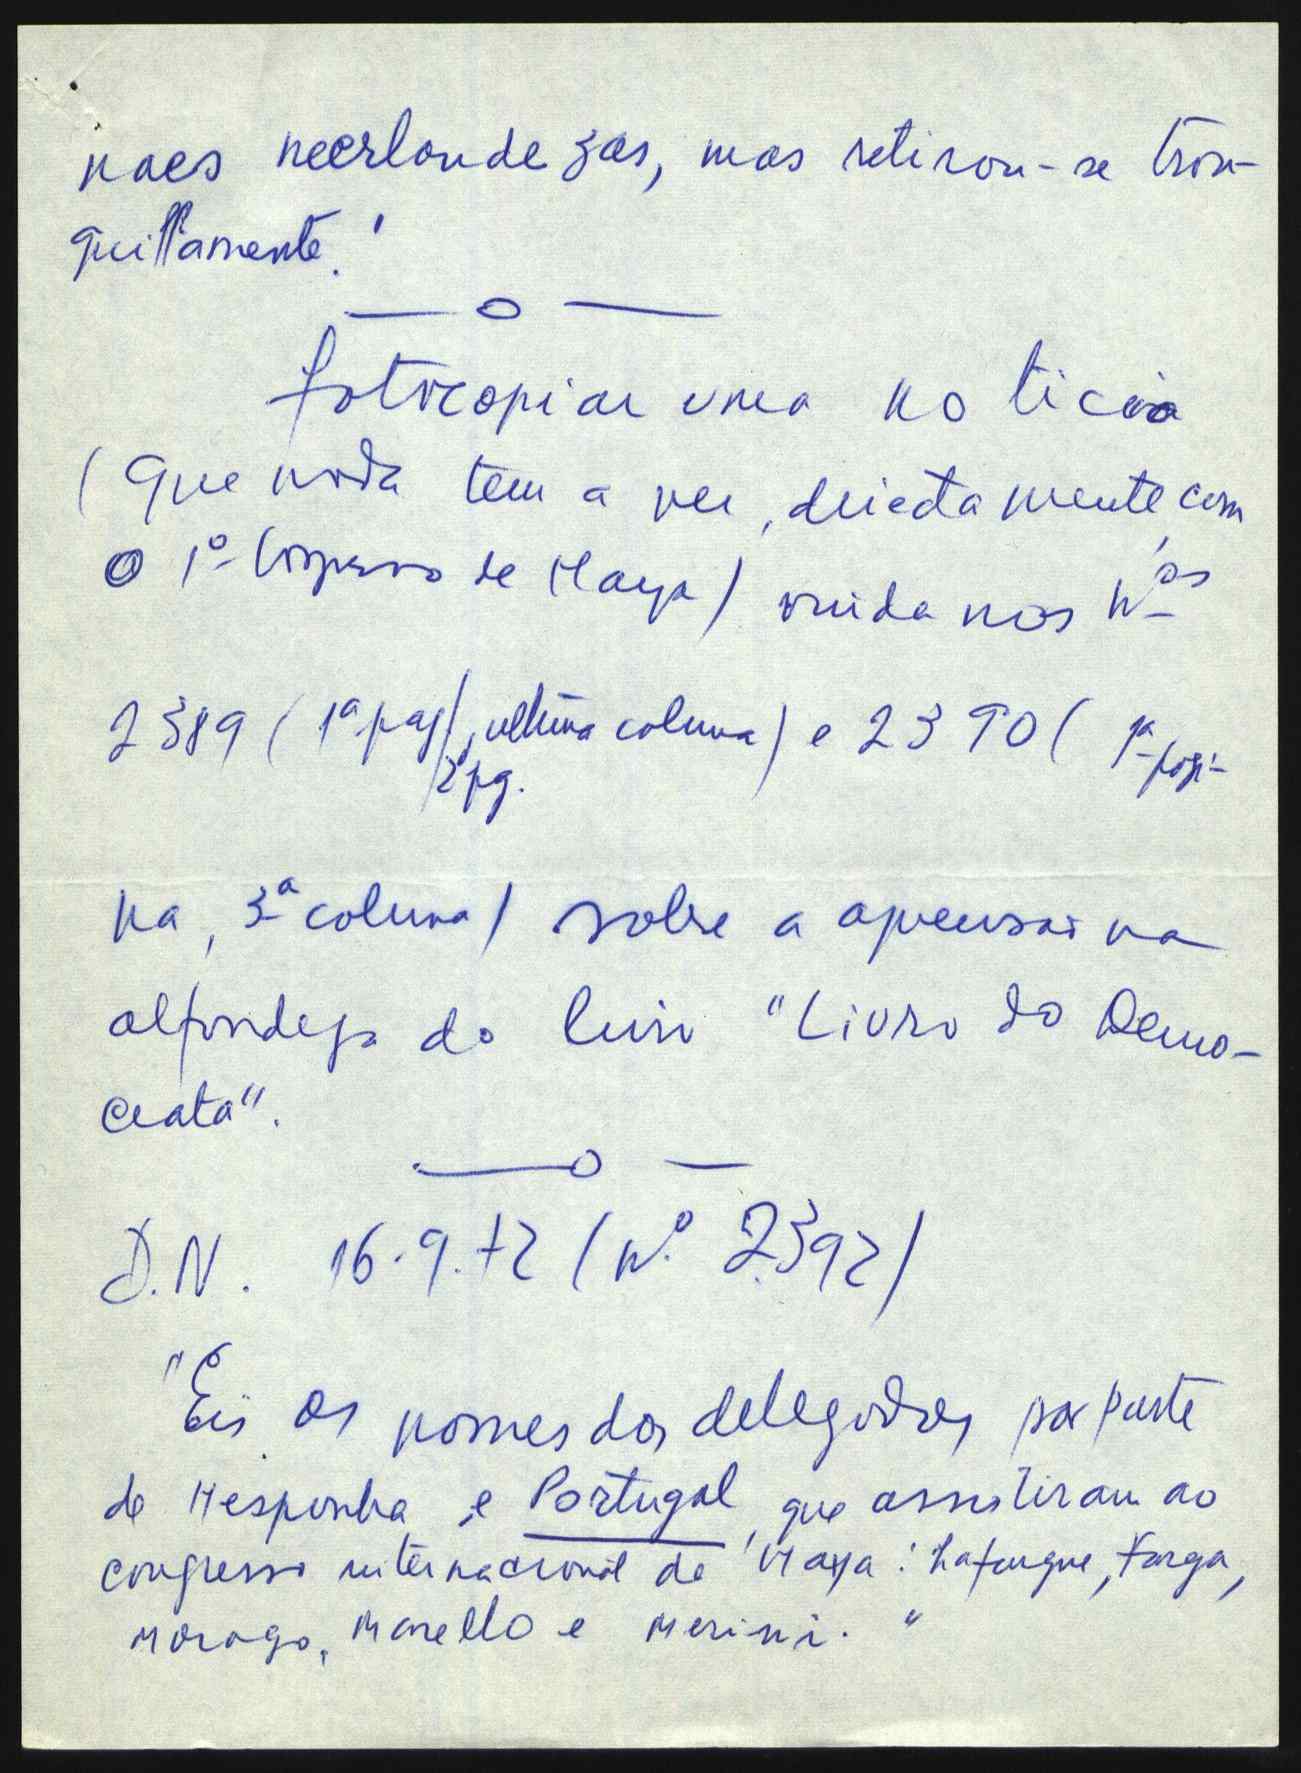 naes neerlandezas, mas retirou-se tran-
quillamente."
— o —
fotocopiar uma noticia
(que nada tem a ver, directamente, com
o 1º Congresso de Haya) vinda nos Nºs
2389 (1ª pag/2ª pg., ultima coluna) e 2390 (1ª pági-
na, 3ª coluna) sobre a apreensão na
alfandega do livro "Livro do Demo-
crata".
— o —
D.N. 16.9.72 (Nº 2392)
"Eis os nomes dos delegados por parte
de Hespanha e Portugal, que assistiram ao
congresso internacional de Haya: Lafargue, Farga,
Morago, Marsello e Merini."